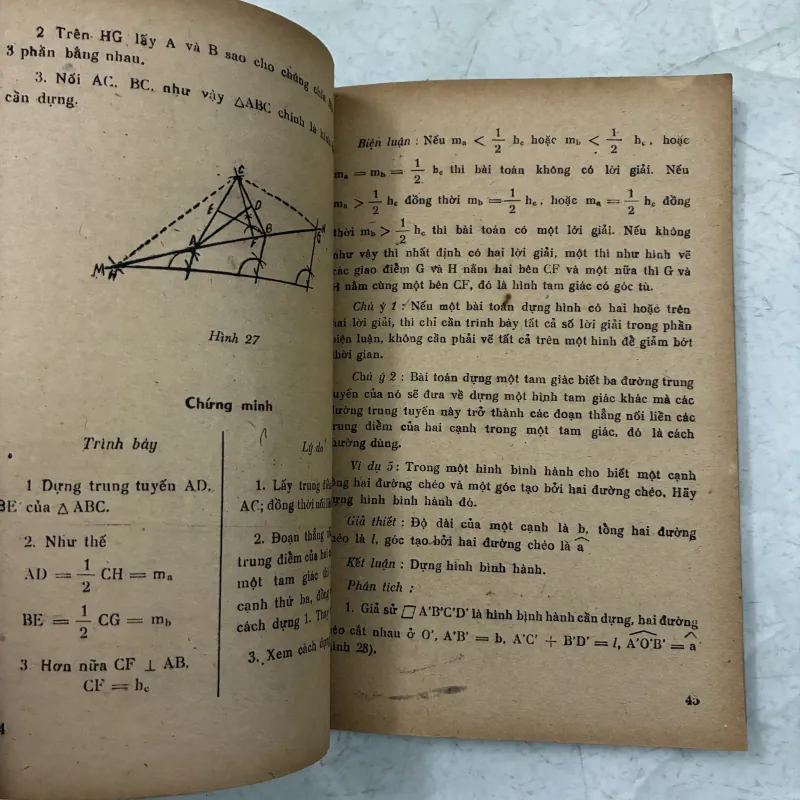 2 Trên HG lấy A và B sao cho chúng chia
3 phần bằng nhau.
3. Nối AC, BC, như vậy △ABC chính là
cần dựng.
C
E
D
A
B
F
G
M
H
Hình 27
Chứng minh
Trình bày
1 Dựng trung tuyến AD,
BE của △ ABC.
2. Như thế
AD = 1/2 CH = mₐ
BE = 1/2 CG = m_b
3 Hơn nữa CF ⊥ AB,
CF = h_c
Lý do
1. Lấy trung
AC; đồng thời nối
2. Đoạn thẳng
trung điểm của hai
một tam giác
cạnh thứ ba, đồng
cách dựng 1.
3. Xem cách dựng
Biện luận : Nếu mₐ < 1/2 h_c hoặc m_b < 1/2 h_c, hoặc
mₐ = m_b = 1/2 h_c thì bài toán không có lời giải. Nếu
mₐ > 1/2 h_c đồng thời m_b = 1/2 h_c, hoặc mₐ = 1/2 h_c đồng
thời m_b > 1/2 h_c thì bài toán có một lời giải. Nếu không
như vậy thì nhất định có hai lời giải, một thì như hình vẽ
các giao điểm G và H nằm hai bên CF và một nữa thì G và
H nằm cùng một bên CF, đó là hình tam giác có góc tù.
Chú ý 1 : Nếu một bài toán dựng hình có hai hoặc trên
hai lời giải, thì chỉ cần trình bày tất cả số lời giải trong phần
biện luận, không cần phải vẽ tất cả trên một hình để giảm bớt
thời gian.
Chú ý 2 : Bài toán dựng một tam giác biết ba đường trung
tuyến của nó sẽ đưa về dựng một hình tam giác khác mà các
đường trung tuyến này trở thành các đoạn thẳng nối liền các
trung điểm của hai cạnh trong một tam giác, đó là cách
thường dùng.
Ví dụ 5 : Trong một hình bình hành cho biết một cạnh
tổng hai đường chéo và một góc tạo bởi hai đường chéo. Hãy
dựng hình bình hành đó.
Giả thiết : Độ dài của một cạnh là b, tổng hai đường
chéo là l, góc tạo bởi hai đường chéo là â
Kết luận : Dựng hình bình hành.
Phân tích :
1. Giả sử ▱ A'B'C'D' là hình bình hành cần dựng, hai đường
chéo cắt nhau ở O', A'B' = b, A'C' + B'D' = l, A'O'B' = â
(hình 28).
45